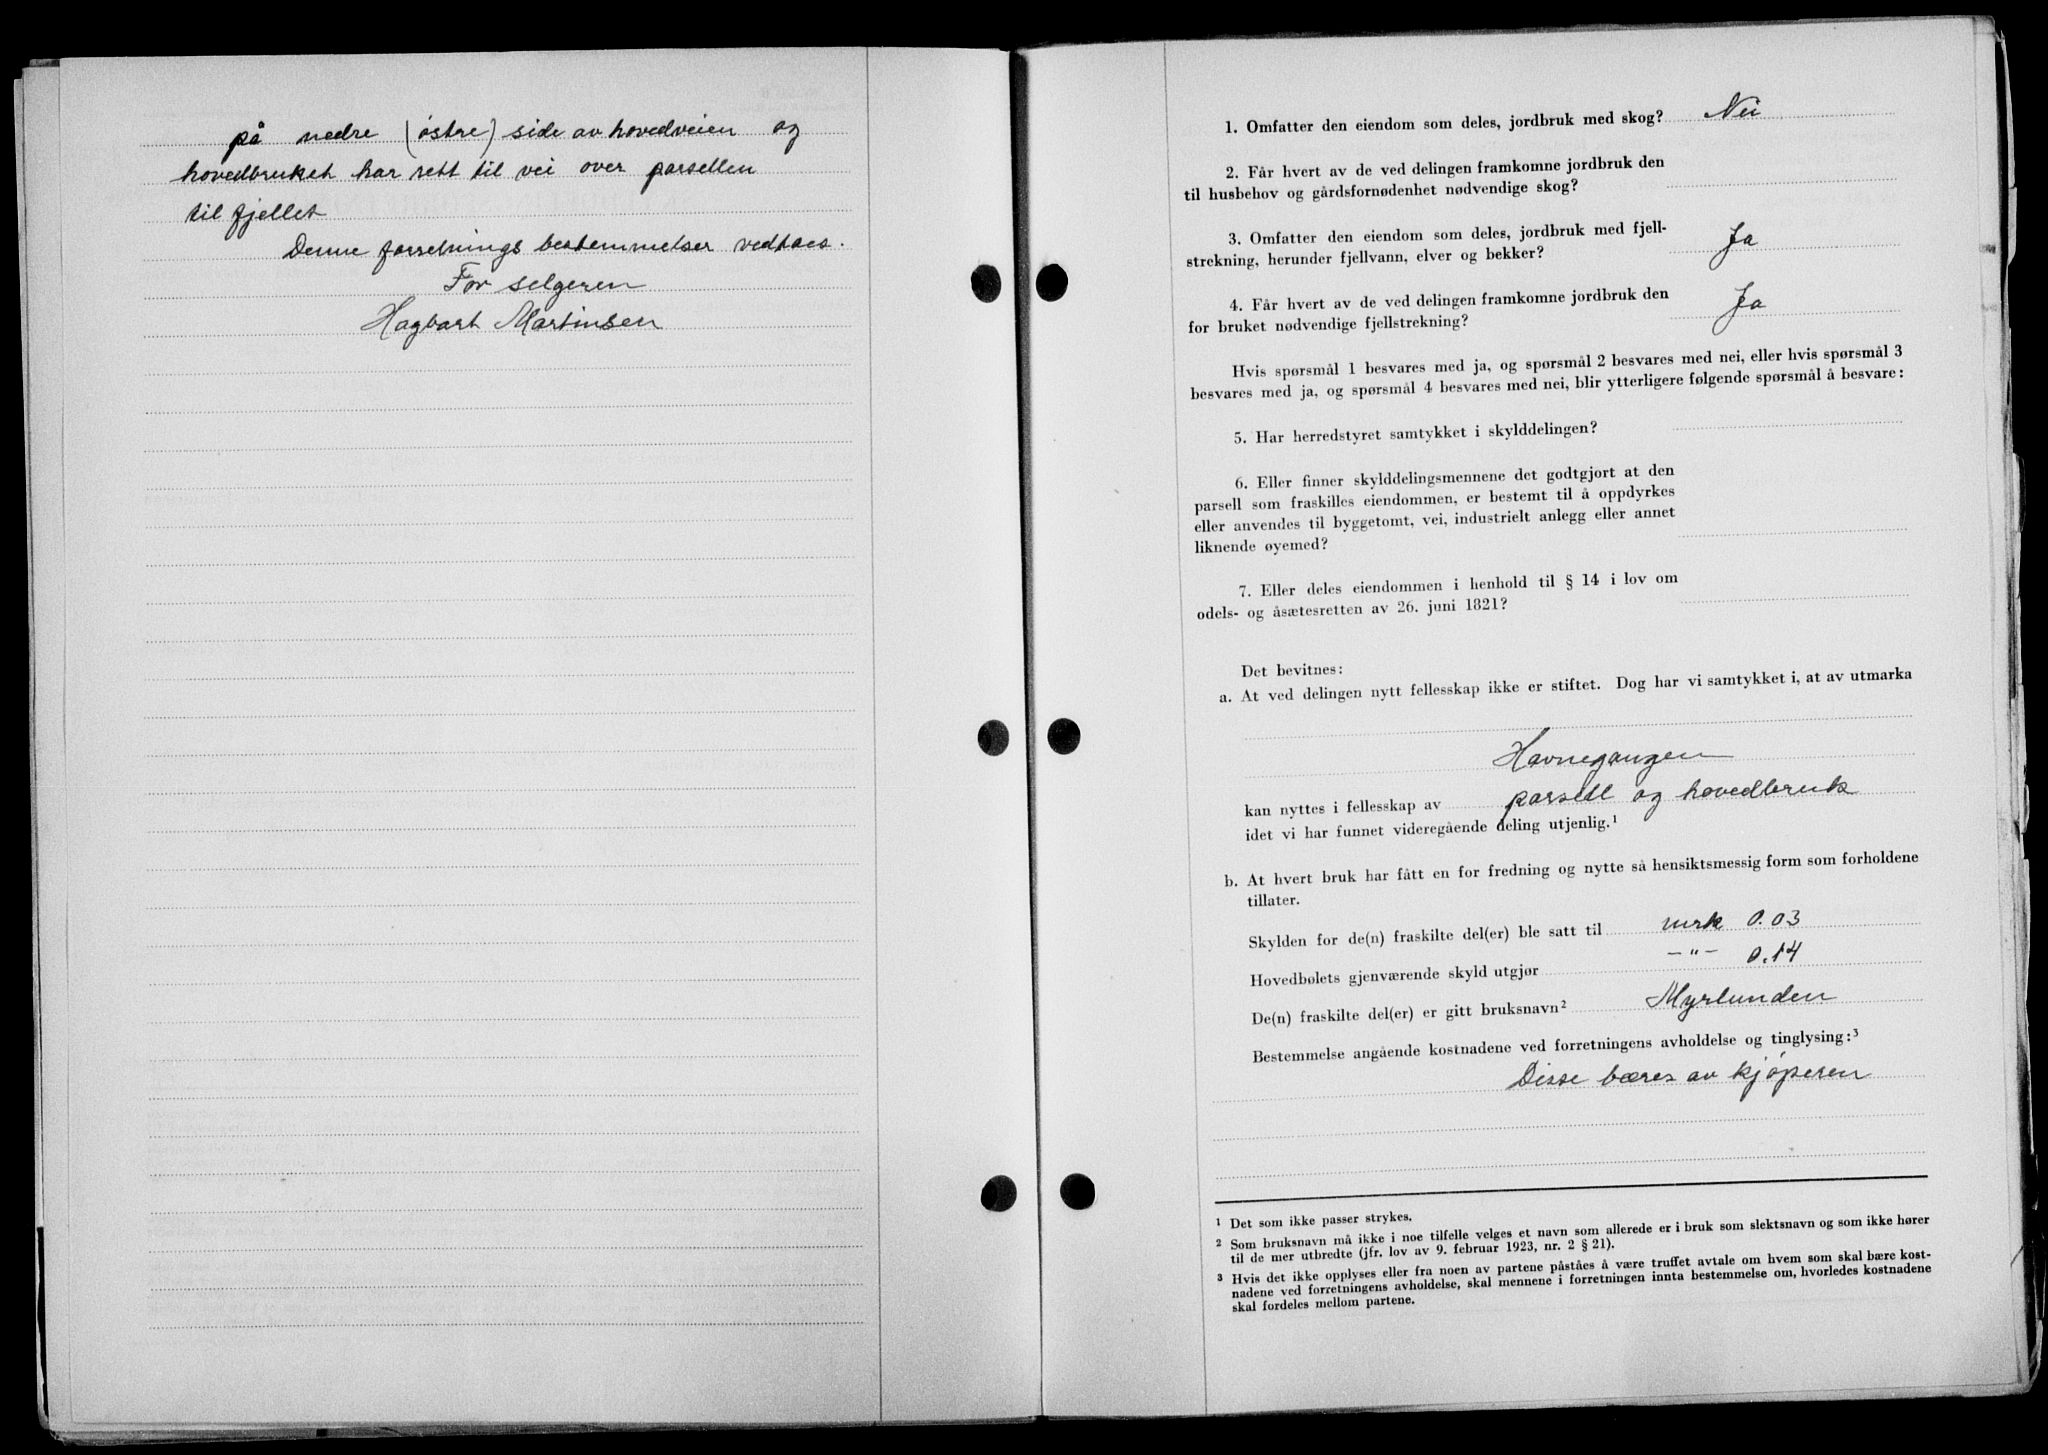 på nedre (østre) side av hovedveien og
hovedbruket har rett til vei over parsellen
til fjellet
Denne forretnings bestemmelser vedtaes.
For selgeren
Hagbart Martinsen
1. Omfatter den eiendom som deles, jordbruk med skog? Nei
2. Får hvert av de ved delingen framkomne jordbruk den
til husbehov og gårdsfornødenhet nødvendige skog?
3. Omfatter den eiendom som deles, jordbruk med fjell-
strekning, herunder fjellvann, elver og bekker? Ja
4. Får hvert av de ved delingen framkomne jordbruk den
for bruket nødvendige fjellstrekning? Ja
Hvis spørsmål 1 besvares med ja, og spørsmål 2 besvares med nei, eller hvis spørsmål 3
besvares med ja, og spørsmål 4 besvares med nei, blir ytterligere følgende spørsmål å besvare:
5. Har herredstyret samtykket i skylddelingen?
6. Eller finner skylddelingsmennene det godtgjort at den
parsell som fraskilles eiendommen, er bestemt til å oppdyrkes
eller anvendes til byggetomt, vei, industrielt anlegg eller annet
liknende øyemed?
7. Eller deles eiendommen i henhold til § 14 i lov om
odels- og åsætesretten av 26. juni 1821?
Det bevitnes:
a. At ved delingen nytt fellesskap ikke er stiftet. Dog har vi samtykket i, at av utmarka
Havnegangen
kan nyttes i fellesskap av parsell og hovedbruk
idet vi har funnet videregående deling utjenlig.¹
b. At hvert bruk har fått en for fredning og nytte så hensiktsmessig form som forholdene
tillater.
Skylden for de(n) fraskilte del(er) ble satt til mrk 0.03
Hovedbølets gjenværende skyld utgjør -"- 0.14
De(n) fraskilte del(er) er gitt bruksnavn² Myrlunden
Bestemmelse angående kostnadene ved forretningens avholdelse og tinglysing:³
Disse bæres av kjøperen
¹ Det som ikke passer strykes.
² Som bruksnavn må ikke i noe tilfelle velges et navn som allerede er i bruk som slektsnavn og som ikke hører
til de mer utbredte (jfr. lov av 9. februar 1923, nr. 2 § 21).
³ Hvis det ikke opplyses eller fra noen av partene påståes å være truffet avtale om hvem som skal bære kost-
nadene ved forretningens avholdelse, skal mennene i forretningen innta bestemmelse om, hvorledes kostnadene
skal fordeles mellom partene.